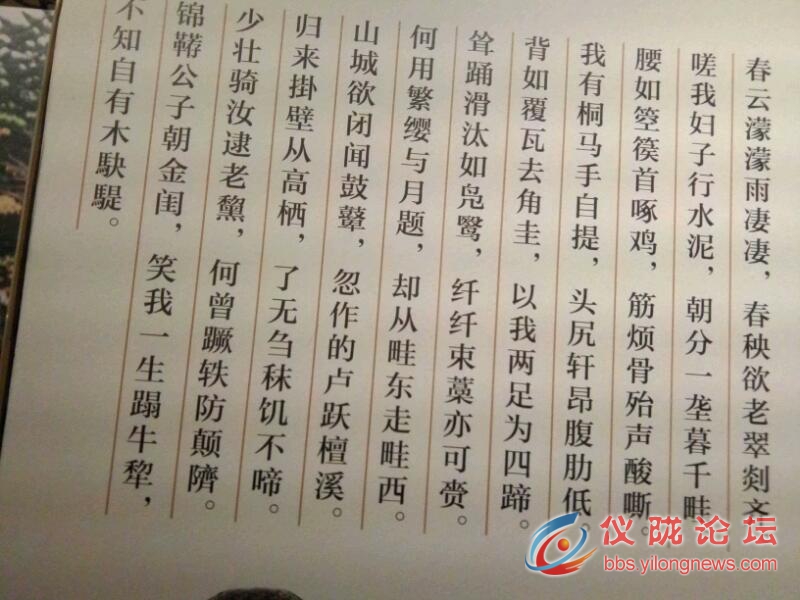 春云濛濛雨凄凄，春秧欲老翠剡齐
嗟我妇子行水泥，朝分一垄暮千畦
腰如箜篌首啄鸡，筋烦骨殆声酸嘶。
我有桐马手自提，头尻轩昂腹肋低。
背如覆瓦去角圭，以我两足为四蹄。
耸踊滑汰如凫鹥，纤纤束藁亦可赍。
何用繁缨与月题，却从畦东走畦西。
山城欲闭闻鼓鼙，忽作的卢跃檀溪。
归来掛壁从高栖，了无刍秣饥不啼。
少壮骑汝逮老黧，何曾蹶轶防颠隮。
锦鞯公子朝金闺，笑我一生蹋牛犂，
不知自有木駃騠。
仪陇论坛
bbs.yilongnews.com